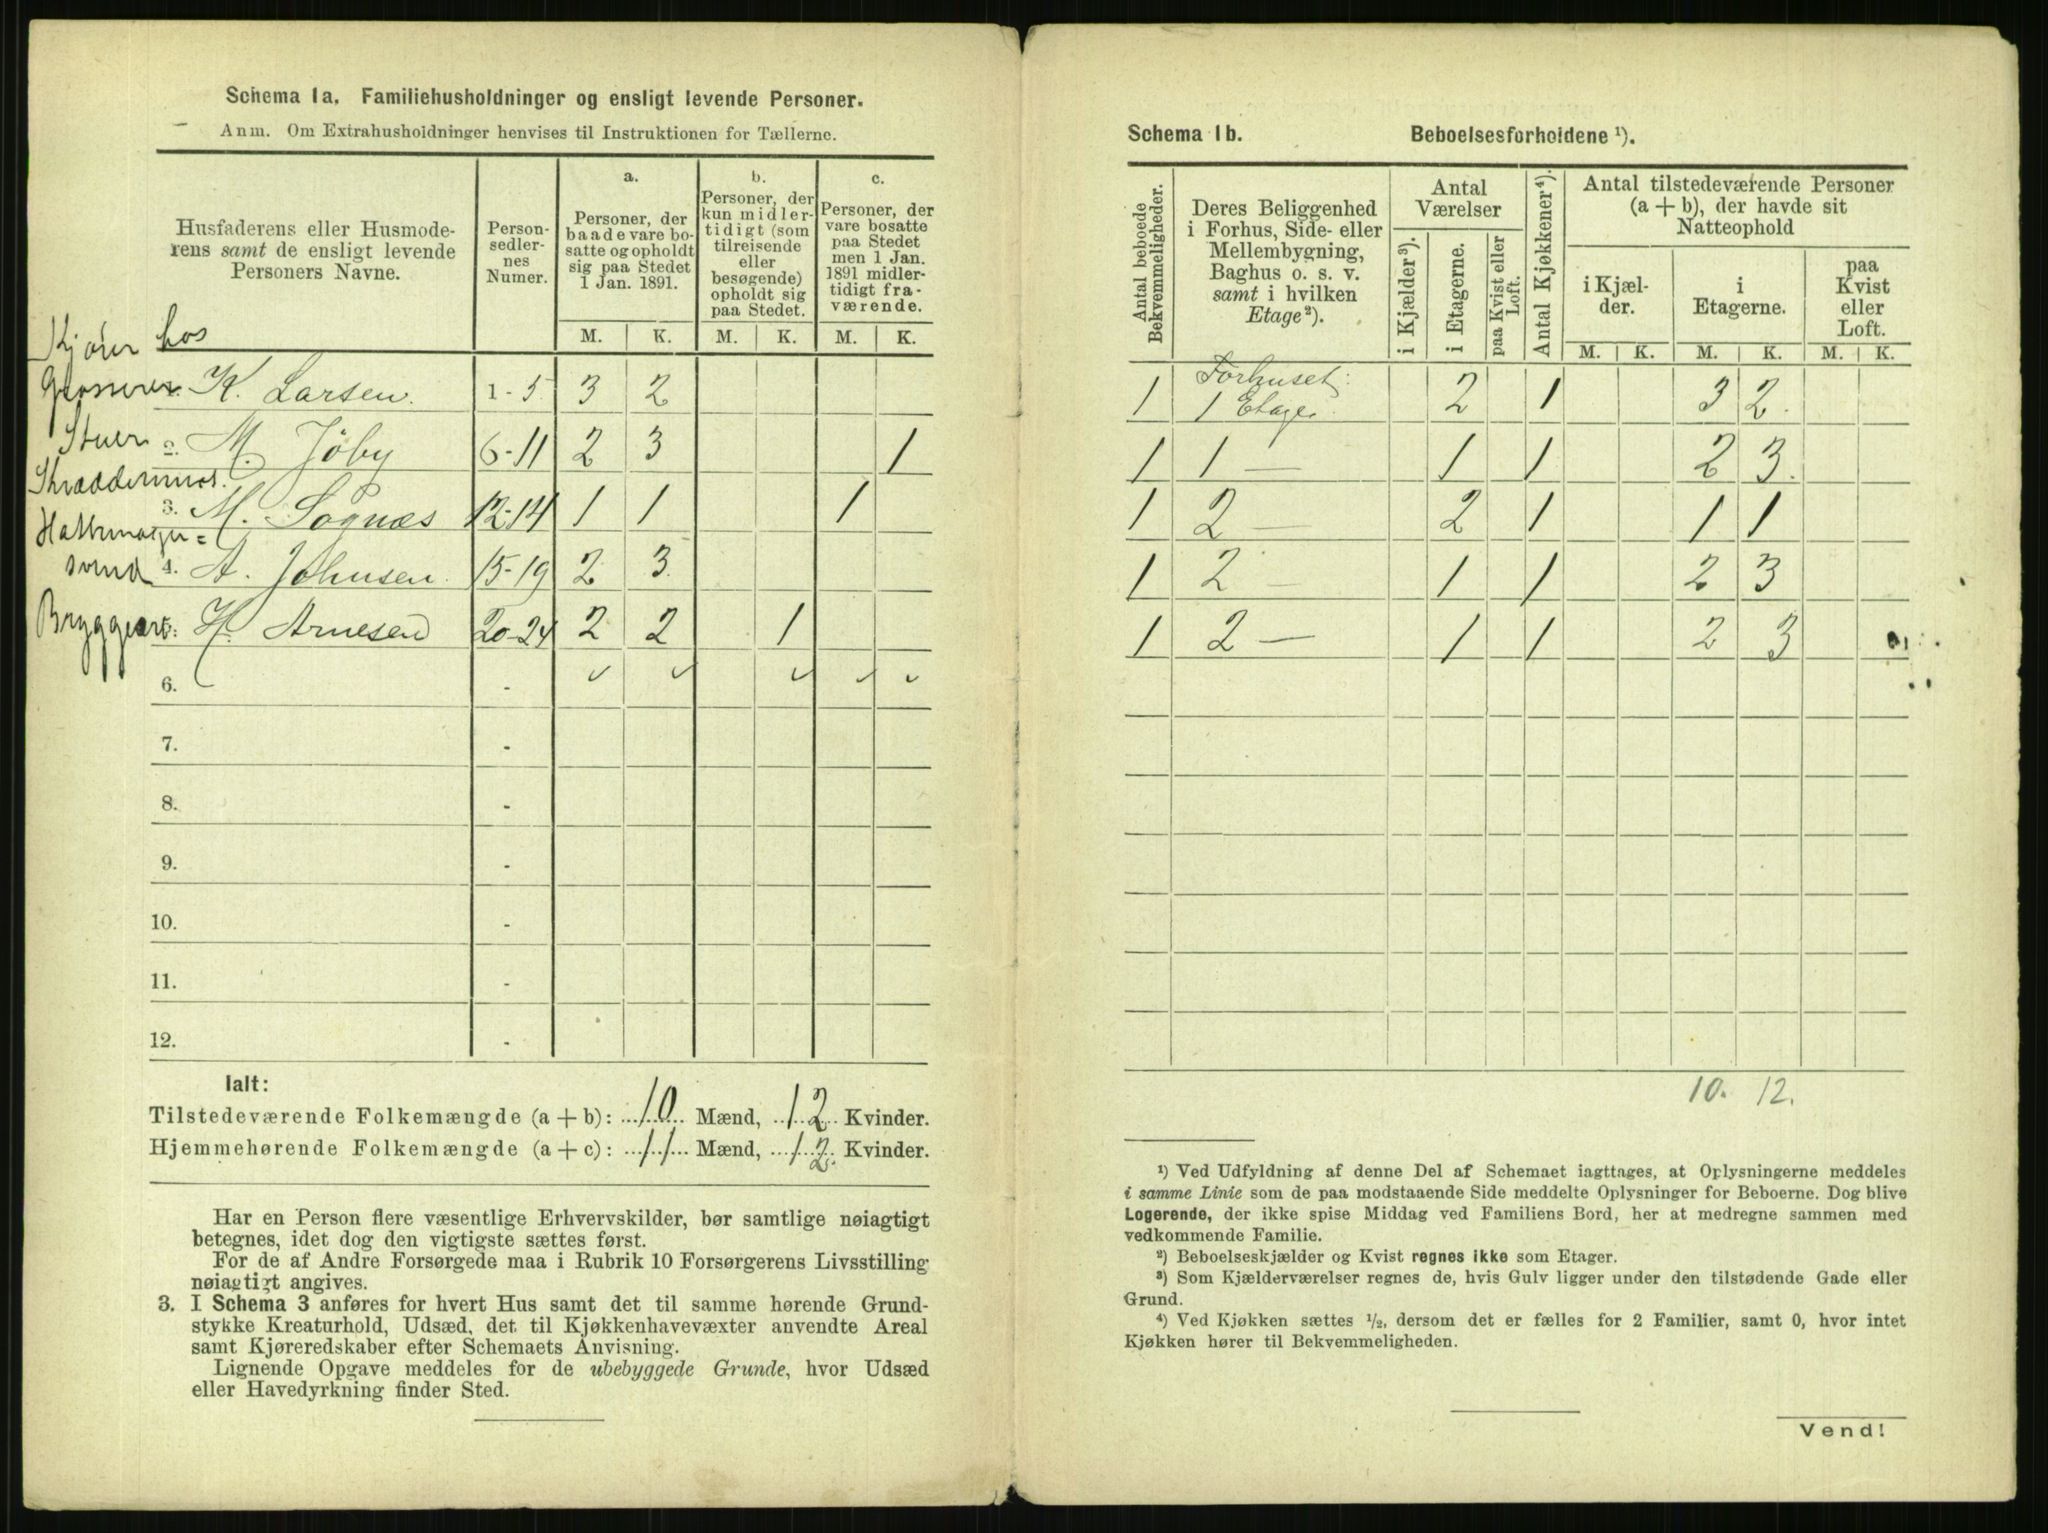 Schema 1a. Familiehusholdninger og ensligt levende Personer.
Anm. Om Extrahusholdninger henvises til Instruktionen for Tællerne.
Husfaderens eller Husmode-
rens samt de ensligt levende
Personers Navne.
Person-
sedler-
nes
Numer.
a.
Personer, der
baade vare bo-
satte og opholdt
sig paa Stedet
1 Jan. 1891.
b.
Personer, der
kun midler-
tidigt (som
tilreisende
eller
besøgende)
opholdt sig
paa Stedet.
c.
Personer, der
vare bosatte
paa Stedet
men 1 Jan.
1891 midler-
tidigt fra-
værende.
M. K. M. K. M. K.
Kjører hos
Grosserer K. Larsen. 1-5 3 2
Stuer 2. M. Jöby 6-11 2 3 1
Skræddermes.
3. M. Sognæs 12-14 1 1 1
Hattemager=
svend 4. A. Johnsen. 15-19 2 3
Bryggearb: H. Arnesen 20-24 2 2 1
6. -
7. -
8. -
9. -
10. -
11. -
12. -
Ialt:
Tilstedeværende Folkemængde (a + b): 10 Mænd, 12 Kvinder.
Hjemmehørende Folkemængde (a + c): 11 Mænd, 12 Kvinder.
Har en Person flere væsentlige Erhvervskilder, bør samtlige nøiagtigt
betegnes, idet dog den vigtigste sættes først.
For de af Andre Forsørgede maa i Rubrik 10 Forsørgerens Livsstilling
nøiagtigt angives.
3. I Schema 3 anføres for hvert Hus samt det til samme hørende Grund-
stykke Kreaturhold, Udsæd, det til Kjøkkenhavevæxter anvendte Areal
samt Kjøreredskaber efter Schemaets Anvisning.
Lignende Opgave meddeles for de ubebyggede Grunde, hvor Udsæd
eller Havedyrkning finder Sted.
Schema 1b. Beboelsesforholdene ¹).
Antal beboede
Bekvemmeligheder.
Deres Beliggenhed
i Forhus, Side- eller
Mellembygning,
Baghus o. s. v.
samt i hvilken
Etage²).
Antal
Værelser
i Kjælder³).
i Etagerne.
paa Kvist eller
Loft.
Antal Kjøkkener⁴).
Antal tilstedeværende Personer
(a + b), der havde sit
Natteophold
i Kjæl-
der.
i
Etagerne.
paa
Kvist
eller
Loft.
M. K. M. K. M. K.
Forhuset:
1 1 Etage 2 1 3 2.
1 1 — 1 1 2 3.
1 2 — 2 1 1 1
1 2 — 1 1 2 3
1 2 — 1 1 2 3
10. 12.
¹) Ved Udfyldning af denne Del af Schemaet iagttages, at Oplysningerne meddeles
i samme Linie som de paa modstaaende Side meddelte Oplysninger for Beboerne. Dog blive
Logerende, der ikke spise Middag ved Familiens Bord, her at medregne sammen med
vedkommende Familie.
²) Beboelseskjælder og Kvist regnes ikke som Etager.
³) Som Kjælderværelser regnes de, hvis Gulv ligger under den tilstødende Gade eller
Grund.
⁴) Ved Kjøkken sættes ½, dersom det er fælles for 2 Familier, samt 0, hvor intet
Kjøkken hører til Bekvemmeligheden.
Vend!